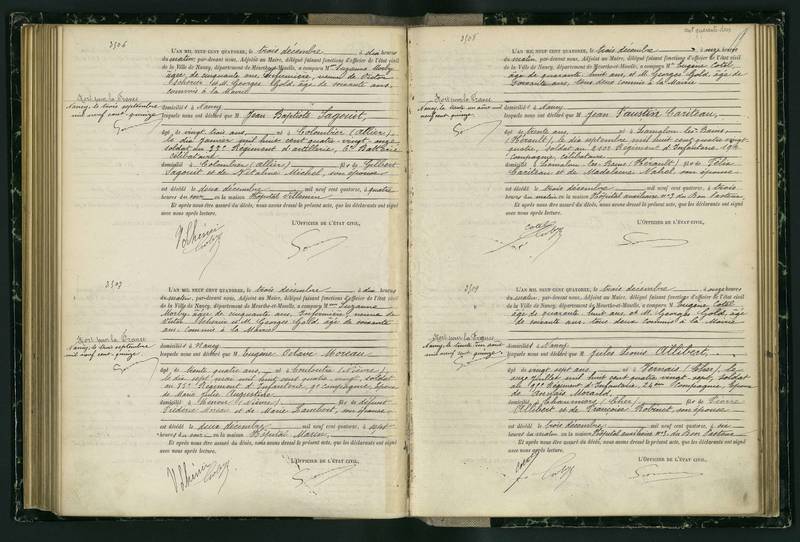 3506
L'AN MIL NEUF CENT QUATORZE, le trois décembre à dix heures
du matin, par-devant nous, Adjoint au Maire, délégué faisant fonctions d'officier de l'état civil
de la Ville de Nancy, département de Meurthe-et-Moselle, a comparu Mme Suzanne Morby,
âgée de cinquante ans, Infirmière, veuve de Victor
et M. Georges Gold, âgé de soixante ans,
commis à la Mairie
Mort pour la France
Nancy, le trois septembre
mil neuf cent quinze
domiciliés à Nancy
lesquels nous ont déclaré que M. Jean Baptiste Sagouit,
âgé de vingt trois ans, né à Colombier (Allier),
le dix janvier mil huit cent quatre-vingt-onze
soldat du Régiment d'artillerie, Batterie
célibataire
domicilié à Colombier (Allier) fils de Gilbert
Sagouit et de Nataline Michel, son épouse
est décédé le deux décembre mil neuf cent quatorze, à quatre
heures du soir en la maison Hôpital Villemin
Et après nous être assuré du décès, nous avons dressé le présent acte, que les déclarants ont signé
avec nous après lecture.
L'OFFICIER DE L'ÉTAT CIVIL,
3507
L'AN MIL NEUF CENT QUATORZE, le trois décembre à dix heures
du matin, par-devant nous, Adjoint au Maire, délégué faisant fonctions d'officier de l'état civil
de la Ville de Nancy, département de Meurthe-et-Moselle, a comparu Mme Suzanne
Morby, âgée de cinquante ans, Infirmière, veuve de
Victor et M. Georges Gold, âgé de soixante
ans, commis à la Mairie
Mort pour la France
Nancy, le trois septembre
mil neuf cent quinze
domiciliés à Nancy
lesquels nous ont déclaré que M. Eugène Octave Moreau
âgé de trente quatre ans, né à (Nièvre),
le dix sept mil huit cent quatre vingt, soldat
au Régiment d'Infanterie, 9e compagnie, époux
de Marie Julie Augustine
domicilié à (Nièvre) fils de défunt
Frédéric Moreau et de Marie Lambert, son épouse
est décédé le deux décembre mil neuf cent quatorze, à sept
heures du soir en la maison Hôpital Marin
Et après nous être assuré du décès, nous avons dressé le présent acte, que les déclarants ont signé
avec nous après lecture.
L'OFFICIER DE L'ÉTAT CIVIL,
3508
L'AN MIL NEUF CENT QUATORZE, le trois décembre à onze heures
du matin, par-devant nous, Adjoint au Maire, délégué faisant fonctions d'officier de l'état civil
de la Ville de Nancy, département de Meurthe-et-Moselle, a comparu M. Eugène Cotel,
âgé de quarante huit ans, et M. Georges Gold, âgé de
soixante ans, tous deux commis à la Mairie
Mort pour la France
Nancy, le trente un août mil
neuf cent quinze
domiciliés à Nancy
lesquels nous ont déclaré que M. Jean Faustin Cariteau,
âgé de trente ans, né à Lamalou-les-Bains
(Hérault), le dix septembre mil huit cent quatre vingt
quatre, soldat au Régiment d'Infanterie
Compagnie, célibataire
domicilié à Lamalou-les-Bains (Hérault) fils de Félix
Cariteau et de Madeleine son épouse
est décédé le trois décembre mil neuf cent quatorze, à trois
heures du matin en la maison Hôpital auxiliaire n°3 du Bon Pasteur
Et après nous être assuré du décès, nous avons dressé le présent acte, que les déclarants ont signé
avec nous après lecture.
L'OFFICIER DE L'ÉTAT CIVIL,
3509
L'AN MIL NEUF CENT QUATORZE, le trois décembre à onze heures
du matin, par-devant nous, Adjoint au Maire, délégué faisant fonctions d'officier de l'état civil
de la Ville de Nancy, département de Meurthe-et-Moselle, a comparu M. Eugène Cotel
âgé de quarante huit ans, et M. Georges Gold, âgé
de soixante ans, tous deux commis à la Mairie
Mort pour la France
Nancy, le trente un août
mil neuf cent quinze
domiciliés à Nancy
lesquels nous ont déclaré que M. Jules Louis Allibert,
âgé de vingt sept ans, né à Vornais (Cher), le
juillet mil huit cent quatre vingt sept, soldat
au Régiment d'Infanterie, Compagnie, époux
de Morand
domicilié à (Cher) fils de Pierre
Allibert et de Françoise Robinet, son épouse
est décédé le trois décembre mil neuf cent quatorze, à six
heures du matin en la maison Hôpital auxiliaire n°3 du Bon Pasteur
Et après nous être assuré du décès, nous avons dressé le présent acte, que les déclarants ont signé
avec nous après lecture.
L'OFFICIER DE L'ÉTAT CIVIL,